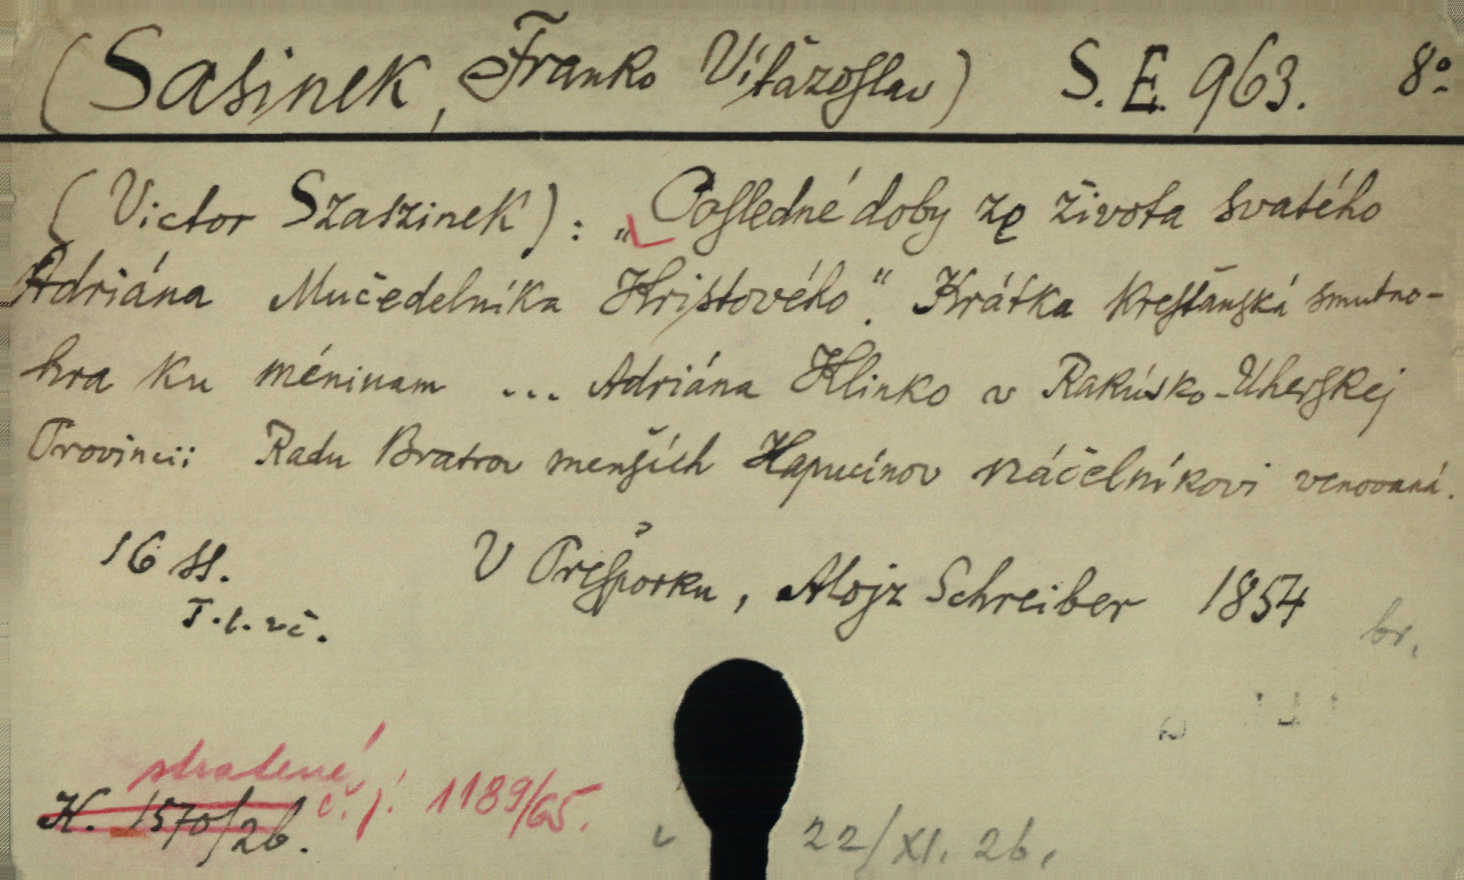 (Sasinek, Franko Víťazoslav) S.E. 963. 8º
(Victor Szaszinek): „Posledné doby zo života svatého
Adriána Mučedelníka Kristového“. Krátka kresťanská smutno-
hra ku méninam ... Adriána Klinko v Rakúsko-Uherskej
Provincii Radu Bratrov menších Kapucínov náčelníkovi venovaná.
16 ss. V Prešporku, Alojz Schreiber 1854
T.l.vč. br.
stratené
K. 1570/26. č.j. 1189/65.
22/XI. 26.